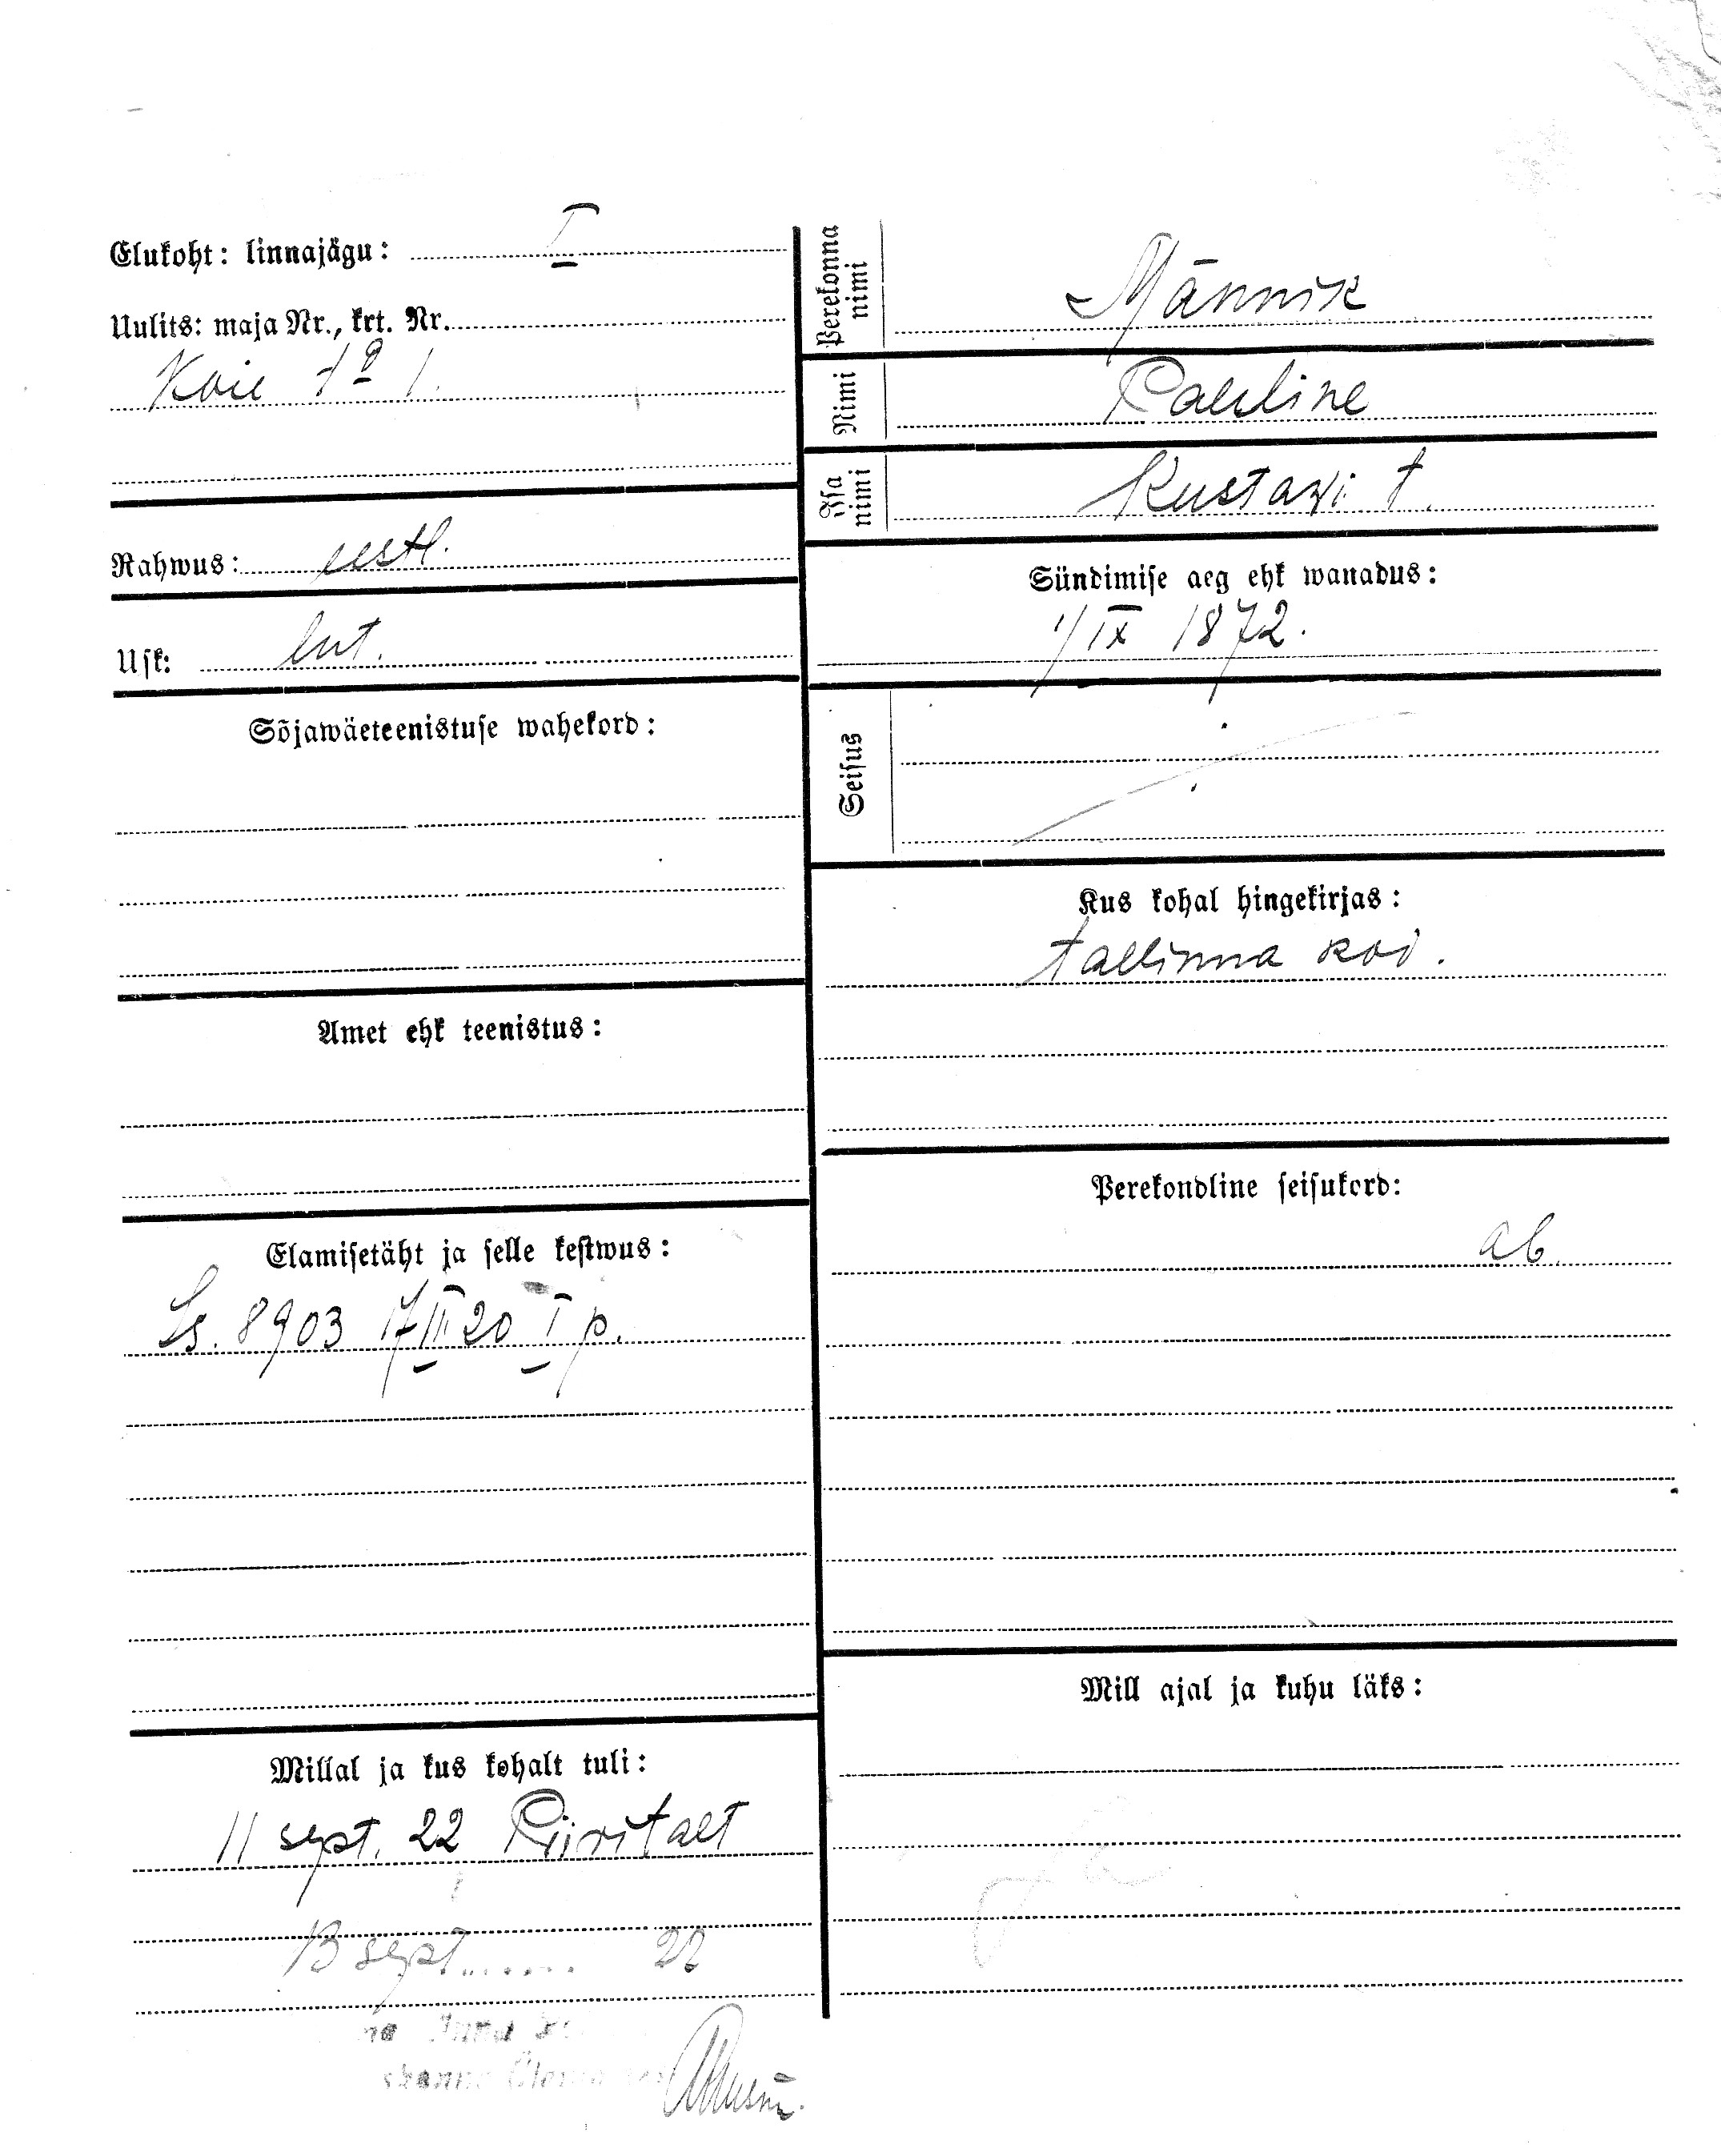 Elukoht: linnajägu: I
Uulits: maja Nr., krt. Nr.
Koie 1a 1.
Rahwus: eestl.
Usk: lut.
Sõjawäeteenistuse wahekord:
Amet ehk teenistus:
Elamisetäht ja selle kestwus:
Ls. 8903 17/III 20 I p.
Millal ja kus kohalt tuli:
11 sept. 22 Piiritalt
13 sept...... 22
Perekonna nimi
Männik
Nimi
Pauline
Isa nimi
Kustawi t.
Sündimise aeg ehk wanadus:
1/IX 1872.
Seisus
Kus kohal hingekirjas:
Tallinna kod.
Perekondline seisukord:
ab.
Mill ajal ja kuhu läks: